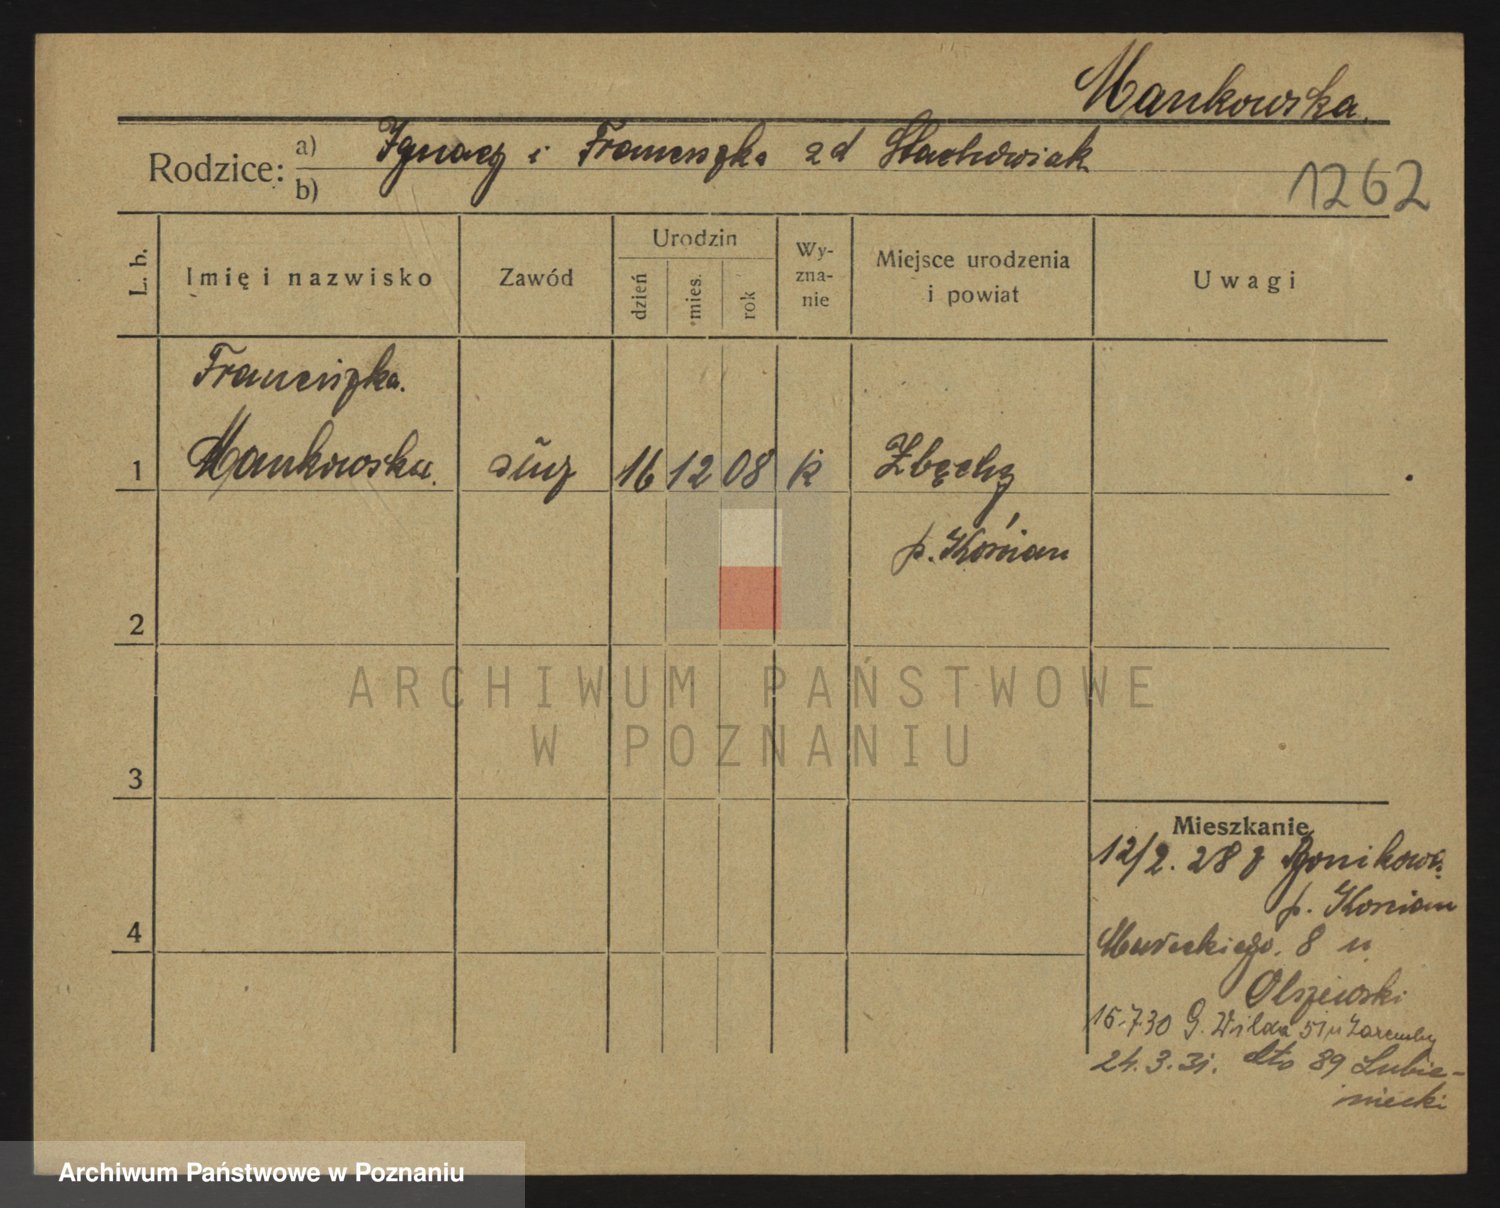 Mankowska.
Rodzice:
a) Ignacy i Franciszka zd Stachowiak
b)
1262
L. b.
Imię i nazwisko
Zawód
Urodzin
dzień
mies.
rok
Wy-
zna-
nie
Miejsce urodzenia
i powiat
Uwagi
Franciszka.
1 Mankowska. służ 16 12 08 k Zbęchy
p. Kościan
2
3
4
Mieszkanie
12/2. 28 z
p. Kościan
Mareckiego. 8 u
Olszewski
15.7.30 G. Wilda 51 u Zaremby
24.3.31. dto 89 Lubie-
niecki
ARCHIWUM PAŃSTWOWE
W POZNANIU
Archiwum Państwowe w Poznaniu